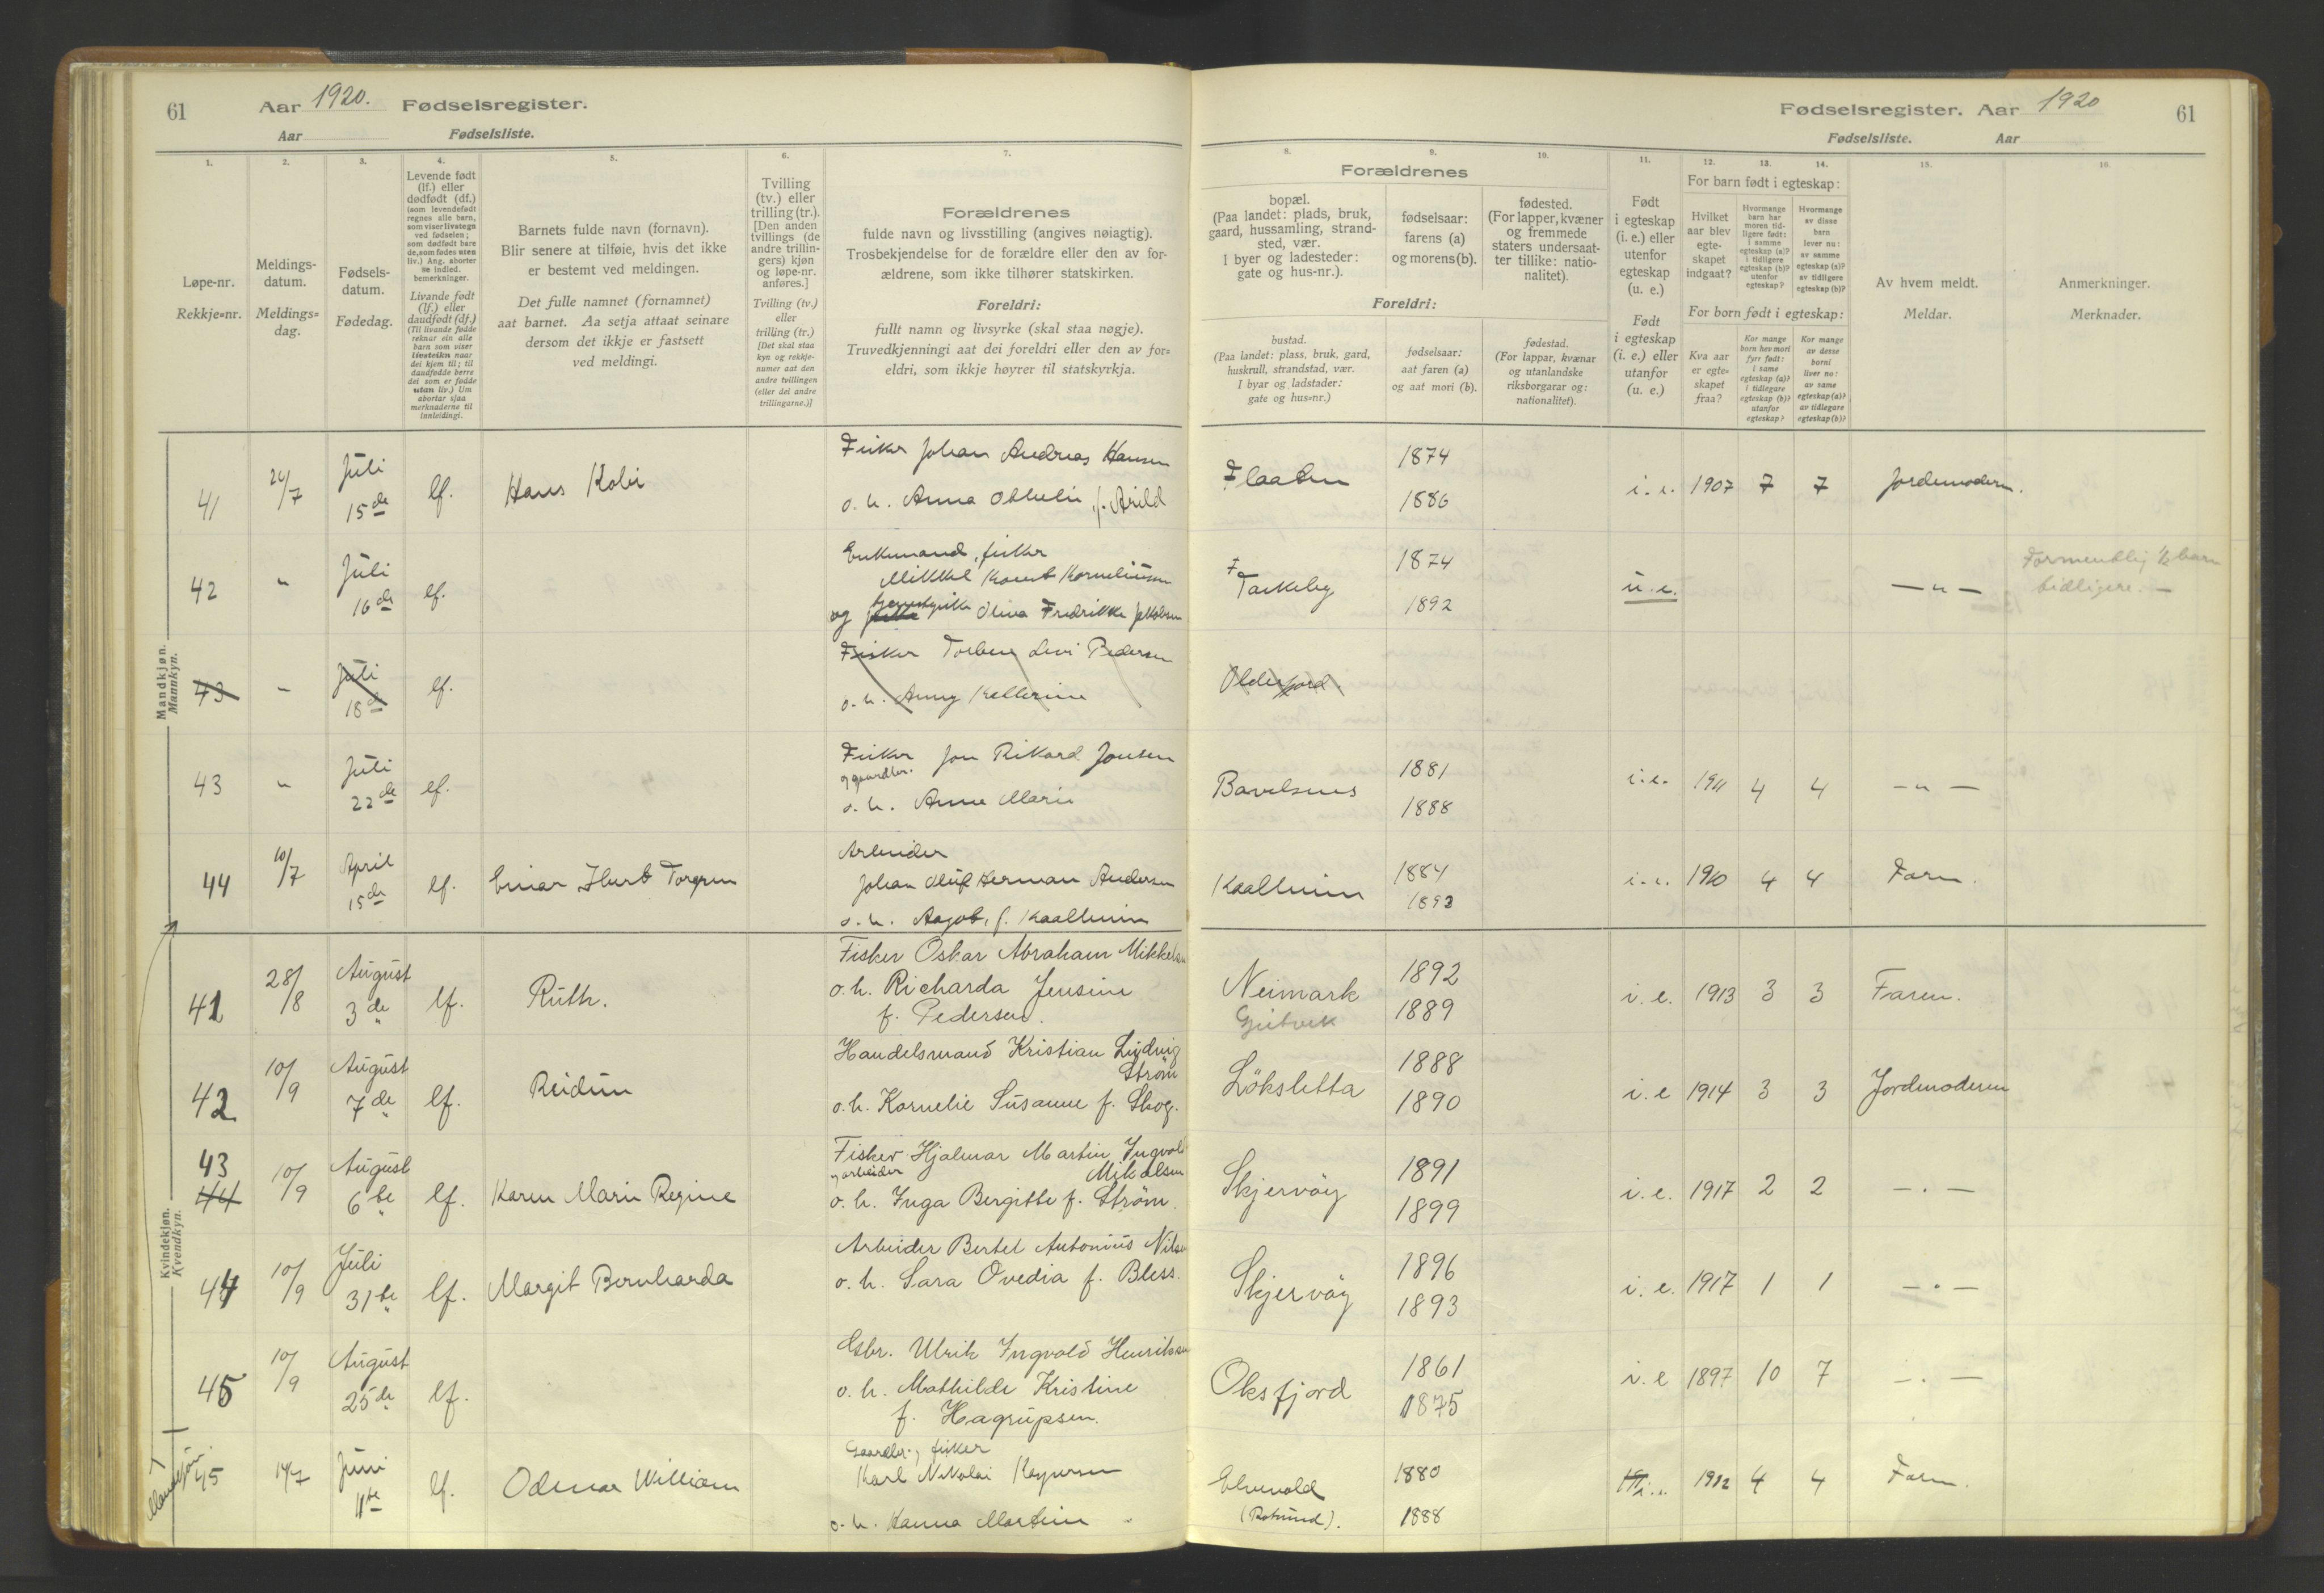 61 Aar 1920. Fødselsregister.
Aar Fødselsliste.
Fødselsregister. Aar 1920 61
Fødselsliste. Aar
1. 2. 3. 4. 5. 6. 7.
Løpe-nr.
Rekkje=nr.
Meldings-
datum.
Meldings=
dag.
Fødsels-
datum.
Fødedag.
Levende født
(lf.) eller
dødfødt (df.)
(som levendefødt
regnes alle barn,
som viser livstegn
ved fødselen;
som dødfødt bare
de, som fødes uten
liv.) Ang. aborter
se indled.
bemerkninger.
Livande født
(lf.) eller
daudfødt (df.)
(Til livande fødde
reknar ein alle
barn som viser
livsteikn naar
dei kjem til; til
daudfødde berre
dei som er fødde
utan liv.) Um
abortar sjaa
merknaderne til
innleidingi.
Barnets fulde navn (fornavn).
Blir senere at tilføie, hvis det ikke
er bestemt ved meldingen.
Det fulle namnet (fornamnet)
aat barnet. Aa setja attaat seinare
dersom det ikkje er fastsett
ved meldingi.
Tvilling
(tv.) eller
trilling (tr.).
[Den anden
tvillings (de
andre trillin-
gers) kjøn
og løpe-nr.
anføres.]
Tvilling (tv.)
eller
trilling (tr.)
[Det skal staa
kyn og rekkje-
numer aat den
andre tvillingen
(eller dei andre
trillingarne.)]
Forældrenes
fulde navn og livsstilling (angives nøiagtig).
Trosbekjendelse for de forældre eller den av for-
ældrene, som ikke tilhører statskirken.
Foreldri:
fullt namn og livsyrke (skal staa nøgje).
Truvedkjenningi aat dei foreldri eller den av for=
eldri, som ikkje høyrer til statskyrkja.
8. 9. 10. 11. 12. 13. 14. 15. 16.
Forældrenes
bopæl.
(Paa landet: plads, bruk,
gaard, hussamling, strand-
sted, vær.
I byer og ladesteder:
gate og hus-nr.).
fødselsaar:
farens (a)
og morens (b).
fødested.
(For lapper, kvæner
og fremmede
staters undersaat-
ter tillike: natio-
nalitet).
Foreldri:
bustad.
(Paa landet: plass, bruk, gard,
huskrull, strandstad, vær.
I byar og ladstader:
gate og hus=nr.)
fødselsaar:
aat faren (a)
og aat mori (b).
fødestad.
(For lappar, kvænar
og utanlandske
riksborgarar og:
nationalitet).
Født
i egteskap
(i. e.) eller
utenfor
egteskap
(u. e.)
Født
i egteskap
(i. e.) eller
utanfor
(u. e.)
For barn født i egteskap:
Hvilket
aar blev
egte-
skapet
indgaat?
Hvormange
barn har
moren tid-
ligere født:
i samme
egteskap (a)?
i tidligere
egteskap (b)?
utenfor
egteskap?
Hvormange
av disse
barn
lever nu:
av samme
egteskap (a)?
av tidligere
egteskap (b)?
For born født i egteskap:
Kva aar
er egte=
skapet
fraa?
Kor mange
born hev mori
fyrr født:
i same
egteskap (a)?
i tidlegare
egteskap (b)?
utanfor
egteskap?
Kor mange
av desse
borni
liver no:
av same
egteskap (a)?
av tidlegare
egteskap (b)?
Av hvem meldt.
Meldar.
Anmerkninger.
Merknader.
Mandkjøn.
Mannkyn.
41 26/7 Juli 15de lf. Hans Kolbi
Fisker Johan Andreas Hansen
o. h. Anna Othelie f. Arild
Flaaten 1874 1886 i. e. 1907 7 7 Jordemodern.
42 " Juli 16de lf.
Enkemand, fisker
Mikkel Kornelius Korneliussen
og tjenestepike Oliva Fredrikke Jakobsen
Taskeby 1874 1892 u. e. — " — Formentlig ½ barn
tidligere. —
43 " Juli 18de lf.
Fisker Torberg Levi Pedersen
o. h. Anny Kathrine
Olderfjord.
43 " Juli 22de lf.
Fisker Jon Rikard Jonsen
og gaardbr.
o. h. Anne Marie
1881 1888 i. e. 1911 4 4 — " —
44 10/7 April 15de lf. Einar Torgren
Arbeider
Johan Oluf Herman Andersen
o. h. Aagot, f. Kaalheim
Kaalheim 1884 1893 i. e. 1910 4 4 Faren.
Kvindekjøn.
Kvendkyn.
41 28/8 August 3de lf. Ruth.
Fisker Oskar Abraham Mikkelsen
o. h. Richarda Jensine
f. Pedersen.
Neimark 1892 1889 i. e. 1913 3 3 Faren.
42 10/9 August 7de lf. Reidun
Handelsmand Kristian Ludvig
Strøm
o. h. Kornelie Susanne f. Skog.
Løksletta 1888 1890 i. e 1914 3 3 Jordemoderen
43
44 10/9 August 6te lf. Karen Marie Regine
Fisker Hjalmar Martin Ingvald
og arbeider Mikalsen
o. h. Inga Bergitte f. Strøm.
Skjervøy 1891 1899 i. e. 1917 2 2 — . —
44 10/9 Juli 31te lf. Margit Bernharda
Arbeider Bertel Antonius Nilsen
o. h. Sara Ovedia f. Bless.
Skjervøy 1896 1893 i. e. 1917 1 1 — . —
45 10/9 August 25de lf.
Gbr. Ulrik Ingvald Henriksen
o. h. Mathilde Kristine
f. Hagrupsen.
Oksfjord 1861 1875 i. e 1897 10 7 — . —
Mandkjøn
45 14/7 Juni 11te lf. Odmar William
Gaardbr., fisker
Karl Nikolai Kaspersen
o. h. Hanna Martine
Elvevold
(Rotsund). 1880 1888 i. e. 1912 4 4 Faren.